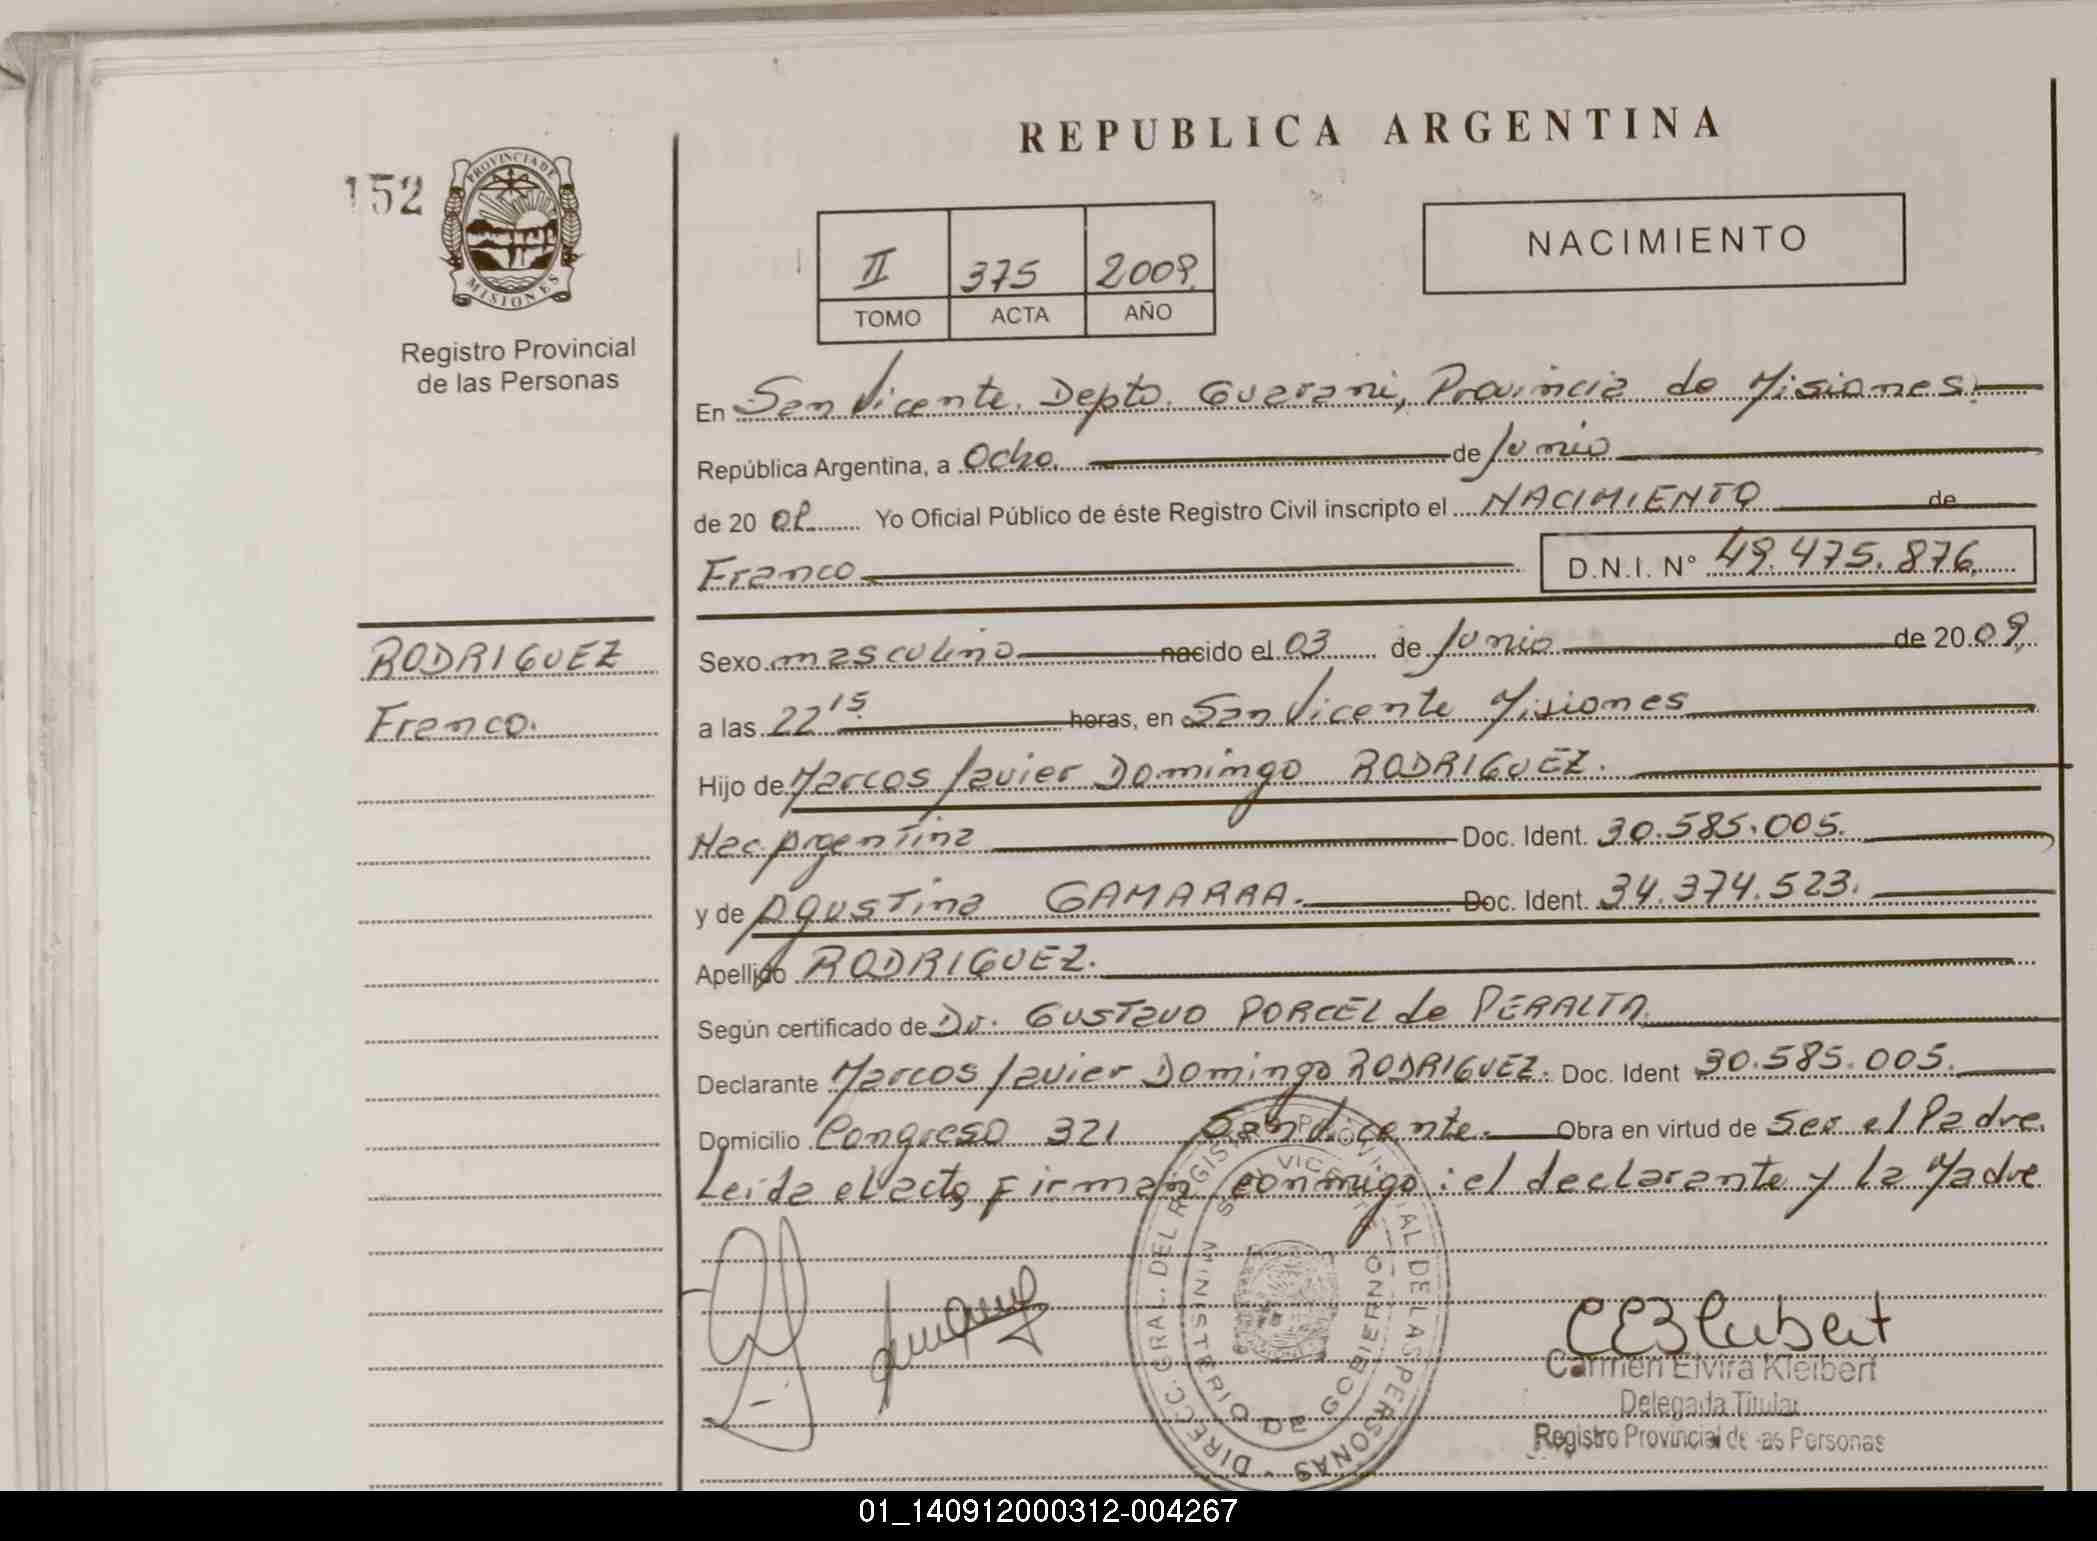 REPUBLICA ARGENTINA
152
PROVINCIA DE
MISIONES
Registro Provincial
de las Personas
II 375 2009.
TOMO ACTA AÑO
NACIMIENTO
En San Vicente. Depto. Guarani, Provincia de Misiones.
República Argentina, a Ocho. de Junio
de 20 09 Yo Oficial Público de éste Registro Civil inscripto el NACIMIENTO de
Franco D.N.I. N° 49.475.876.
RODRIGUEZ
Franco.
Sexo masculino nacido el 03 de Junio de 20 09,
a las 22 15 horas, en San Vicente Misiones
Hijo de Marcos Javier Domingo RODRIGUEZ.
Nac. Argentina Doc. Ident. 30.585.005.
y de Agustina GAMARRA. Doc. Ident. 34.374.523.
Apellido RODRIGUEZ.
Según certificado de Dr. Gustavo PORCEL de PERALTA
Declarante Marcos Javier Domingo RODRIGUEZ. Doc. Ident 30.585.005.
Domicilio Congreso 321 San Vicente. Obra en virtud de Ser el Padre.
Leida el acta, firman conmigo: el declarante y la Madre
DIRECC. GRAL. DEL REGISTRO PROVINCIAL DE LAS PERSONAS
SAN VICENTE
MINISTERIO DE GOBIERNO
Carmen Elvira Kleibert
Delegada Titular
Registro Provincial de las Personas
01_140912000312-004267